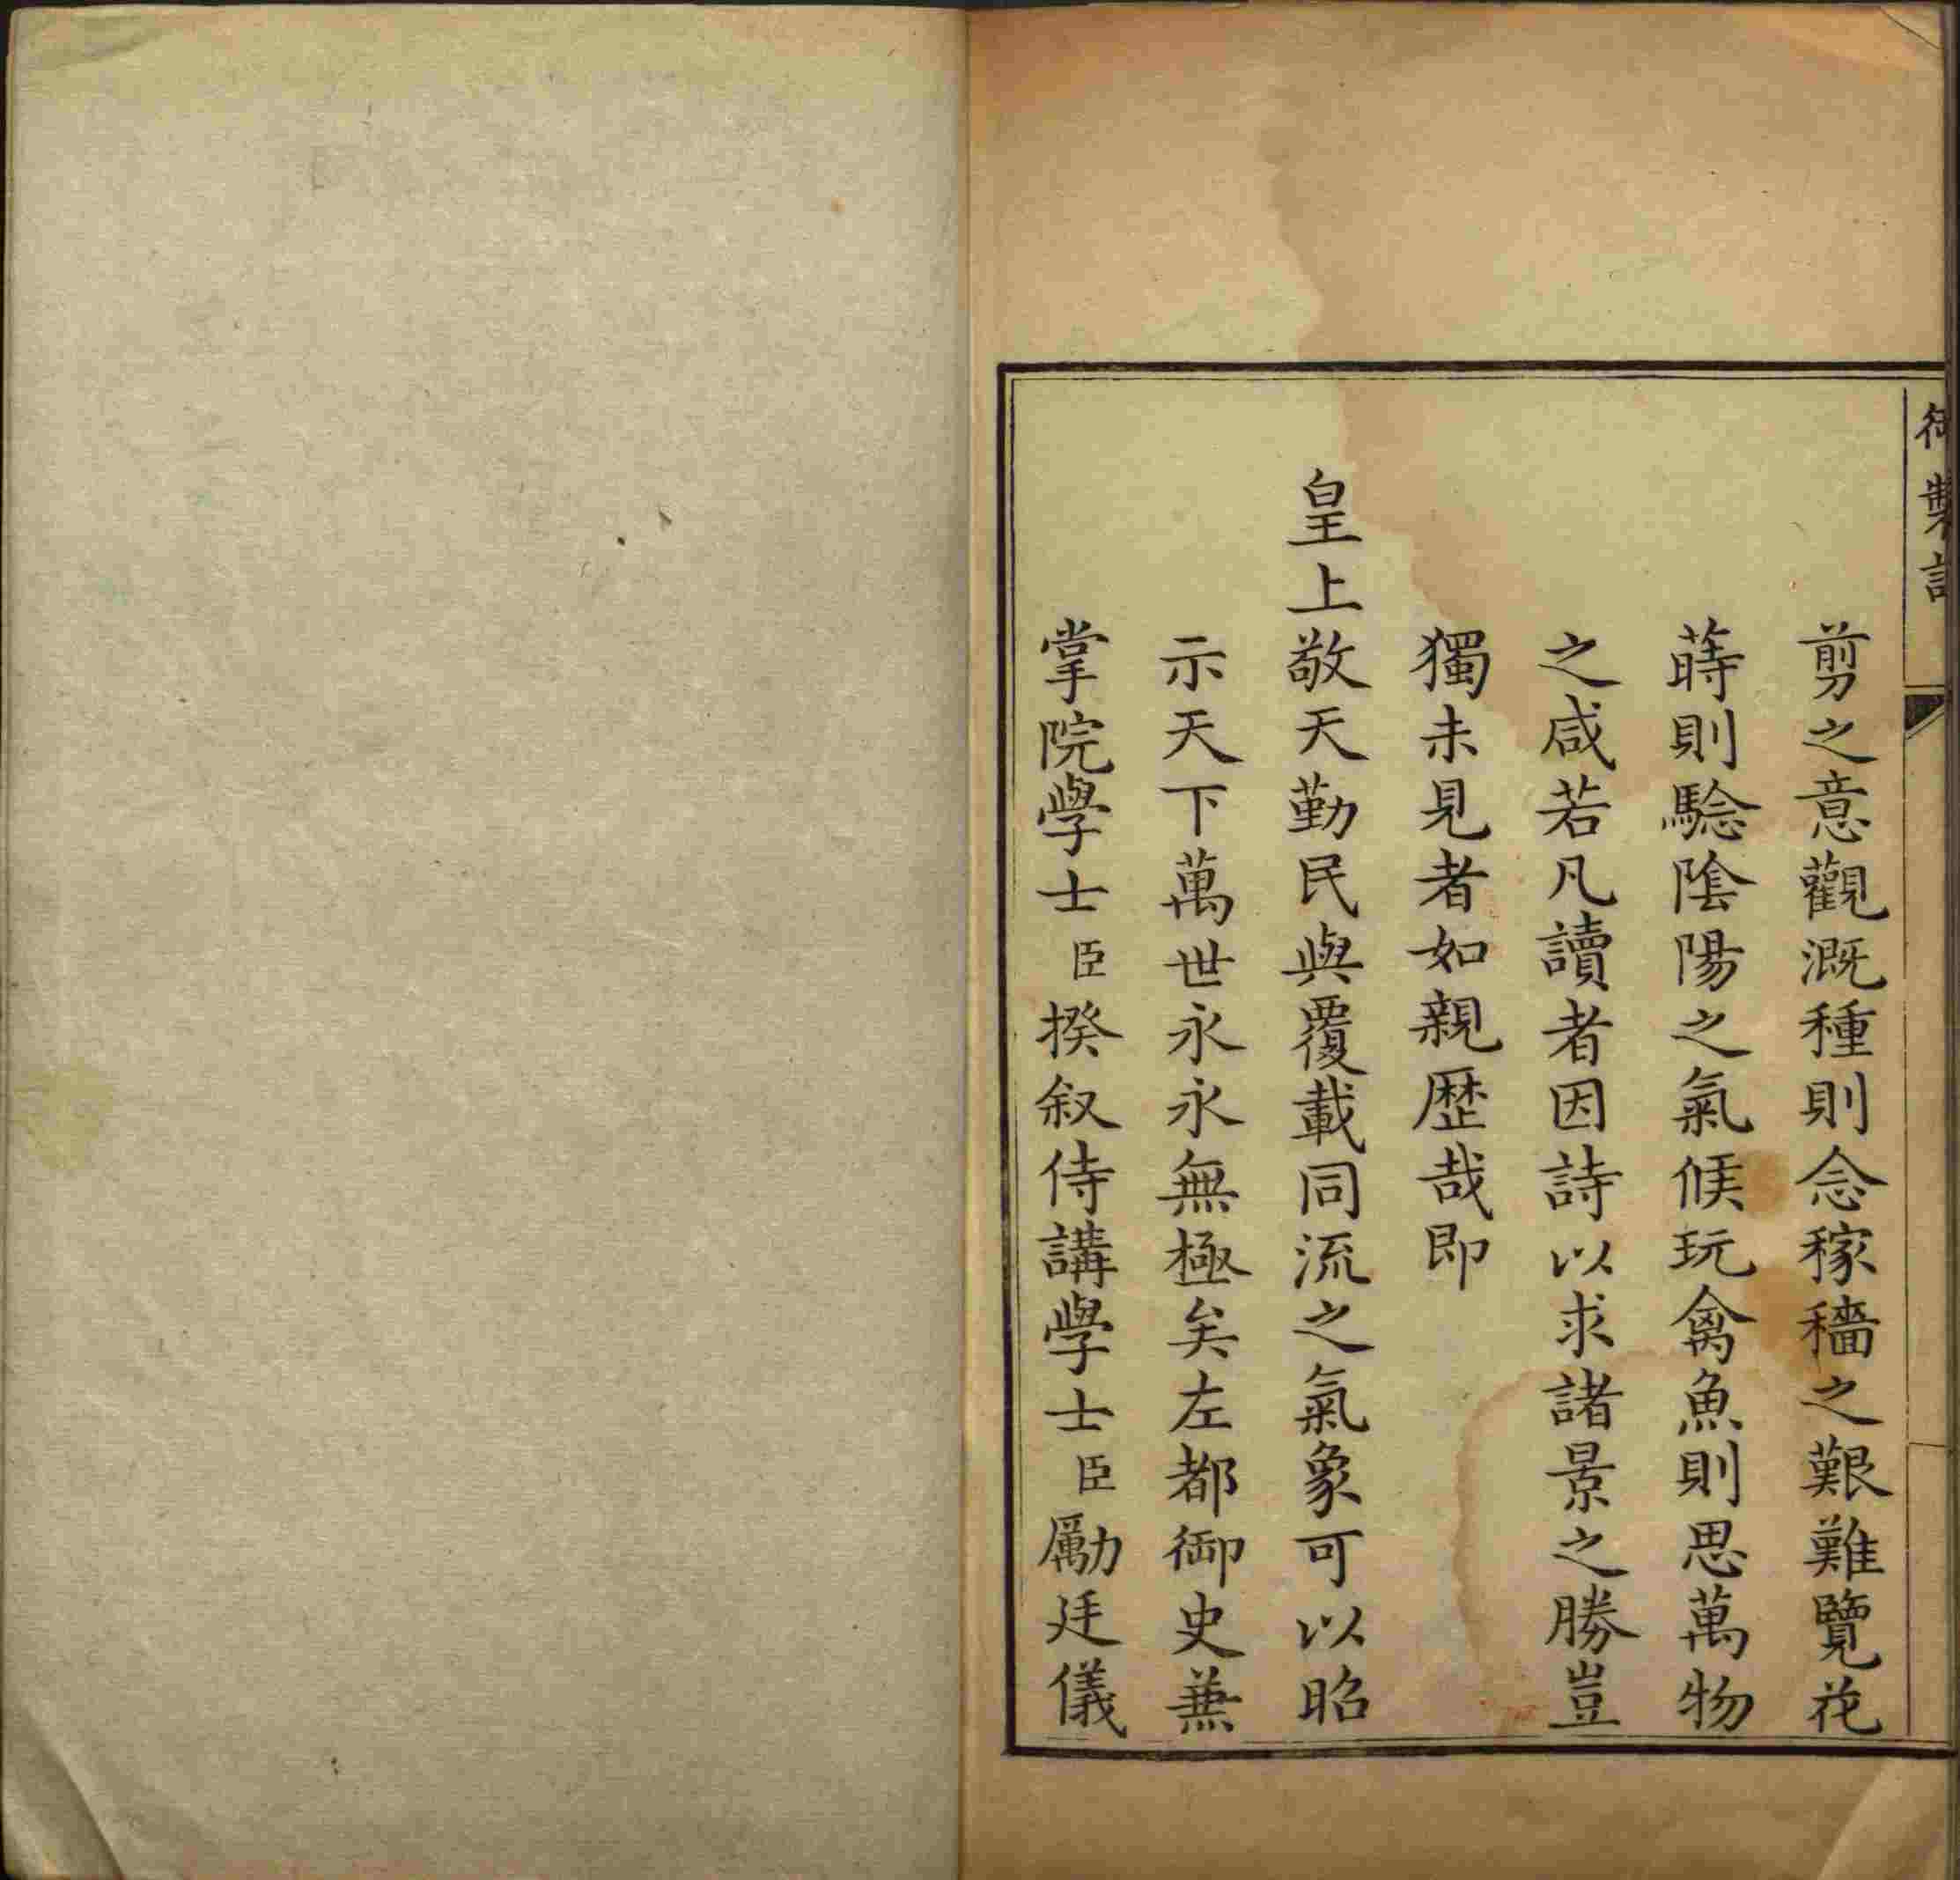 御製詩
剪之意觀溉種則念稼穡之艱難覽花
蒔則驗陰陽之氣候玩禽魚則思萬物
之咸若凡讀者因詩以求諸景之勝豈
獨未見者如親歷哉即
皇上敬天勤民與覆載同流之氣象可以昭
示天下萬世永永無極矣左都御史兼
掌院學士臣揆叙侍講學士臣勵廷儀